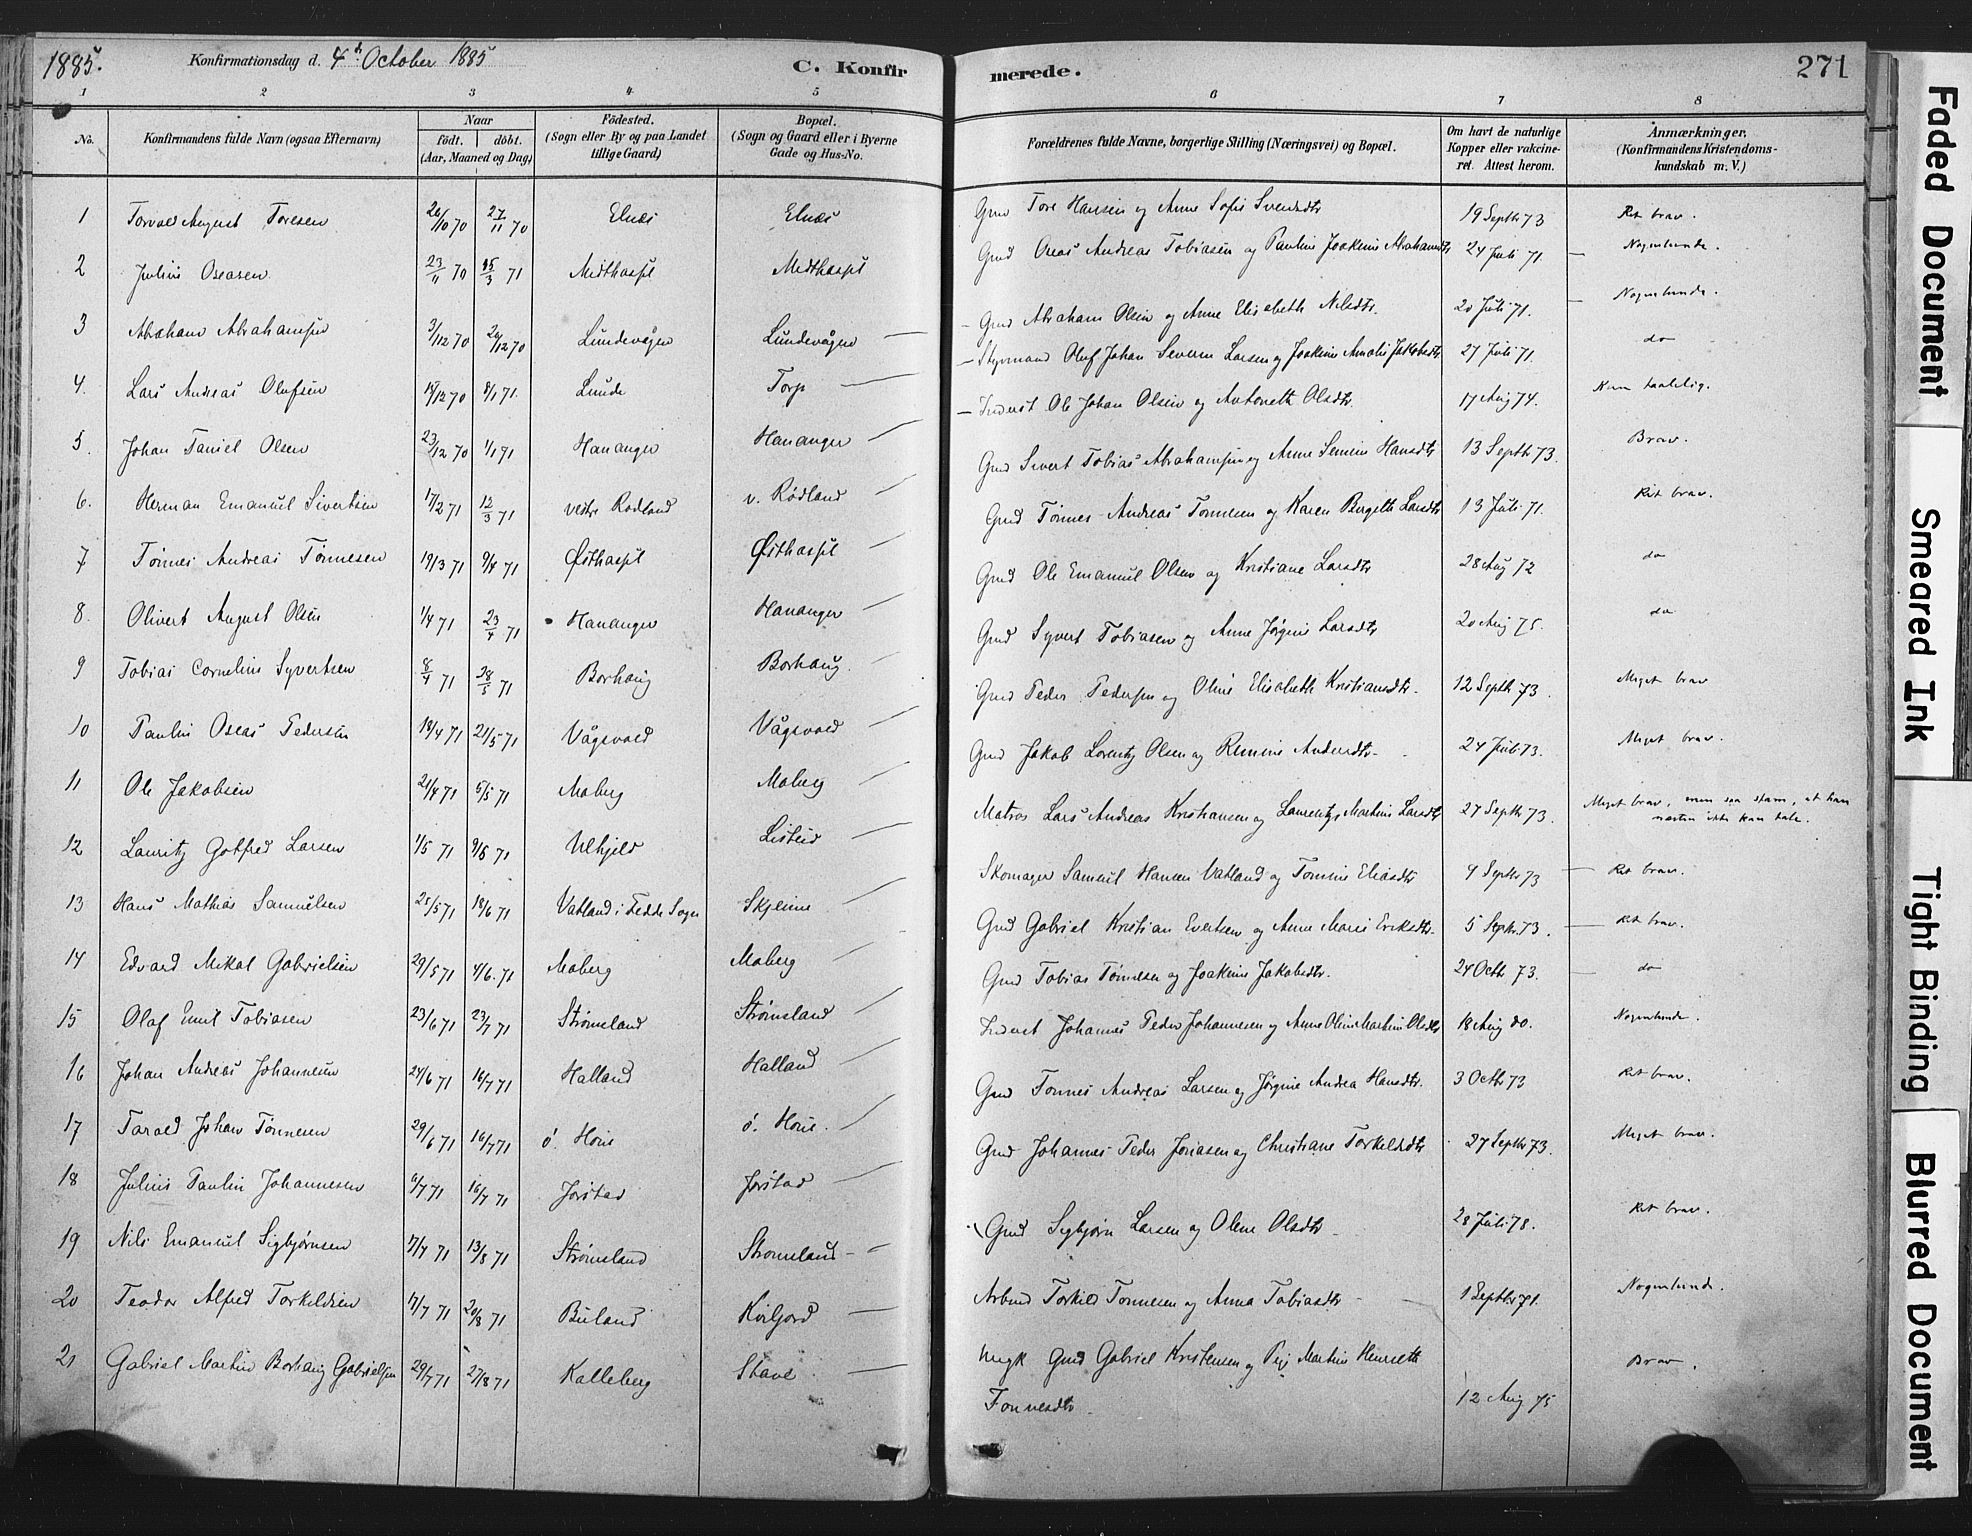 1885.
Konfirmationsdag d. 4d October 1885
C. Konfirmerede.
271
1 2 3 4 5 6 7 8
No.
Konfirmandens fulde Navn (ogsaa Efternavn)
Naar
födt. döbt.
(Aar, Maaned og Dag)
Födested.
(Sogn eller By og paa Landet
tillige Gaard)
Bopæl.
(Sogn og Gaard eller i Byerne
Gade og Hus-No.
Forældrenes fulde Navne, borgerlige Stilling (Næringsvei) og Bopæl.
Om havt de naturlige
Kopper eller vakcine-
ret. Attest herom.
Anmærkninger.
(Konfirmandens Kristendoms-
kundskab m. V.)
1 Torvald August Toresen 26/10 70 27/11 70 Elnæs Elnæs Gmd Tore Hansen og Anne Sofie Svendsdtr 19 Septbr 73 Ret brav.
2 Julius Oseasen 23/11 70 15/3 71 Midthassel Midthassel Gmd Oseas Andreas Tobiasen og Pauline Joakime Abrahamsdtr 24 Juli 71. Nogenlunde.
3 Abraham Abrahamsen 3/12 70 26/12 70 Lundevågen Lundevågen Gmd Abraham Olsen og Anne Elisabeth Nilsdtr. 20 Juli 71. Nogenlunde.
4. Lars Andreas Olufsen 18/12 70 8/1 71. Lunde Torp Styrmand Oluf Johan Severin Larsen og Joakime Amalie Jakobsdtr 27 Juli 71. do
5. Johan Daniel Olsen 23/12 70 1/1 71 Hananger Hananger Inderst Ole Johan Olsen og Antonette Olsdtr. 17 Aug 74. Kun taalelig.
6. Herman Emanuel Sivertsen 17/2 71 12/3 71 vestre Rødland v. Rødland Gmd Sivert Tobias Abrahamsen og Anne Semine Hansdtr 13 Septbr 73. Brav.
7 Tønnes Andreas Tønnesen 19/3 71 9/4 71 Østhassel Østhassel Gmd Tønnes Andreas Tønnesen og Karen Birgitte Larsdtr 13 Juli 71. Ret brav.
8. Olivert August Olsen 1/4 71 23/4 71 Hananger Hananger Gmd Ole Emanuel Olsen og Kristiane Larsdtr 28 Aug 72 do
9 Tobias Cornelius Syvertsen 8/4 71 28/5 71 Borhaug Borhaug. Gmd Syvert Tobiasen og Anne Jørgine Larsdtr 20 Aug 75. do
10 Paulin Oseas Pedersen 18/4 71 21/5 71 Vågsvold Vågsvold Gmd Peder Pedersen og Oline Elisabeth Kristiansdtr. 12 Septbr 73. Meget brav
11 Ole Jakobsen 21/4 71 5/5 71 Maberg Maberg Gmd Jakob Lorentz Olsen og Rimine Andersdtr. 24 Juli 73. Meget brav.
12 Lauritz Gotfred Larsen 1/5 71 9/6 71 Ulhjeld Listeid Matros Lars Andreas Kristiansen og Laurentze Martine Larsdtr 27 Septbr 73. Meget brav, men saa stam, at han
næsten ikke kan tale.
13 Hans Mathias Samuelsen 25/5 71 18/6 71 Vatland i Fedde Sogn Skjeime Skomager Samuel Hansen Vatland og Tomine Eliasdtr 9 Septbr 73 Ret brav.
14 Edvard Mikal Gabrielsen 29/5 71 4/6. 71 Maberg Maberg Gmd Gabriel Kristian Evertsen og Anne Marie Eriksdtr. 5 Septbr. 73. Ret brav.
15 Olaf Emil Tobiasen 23/6 71 23/7 71 Strømsland Strømsland Gmd Tobias Tønnesen og Joakime Jakobsdtr. 24 Octbr 73. do
16 Johan Andreas Johannesen 24/6 71 16/7 71 Halland Halland Inderst Johannes Peder Johannesen og Anne Oline Martine Olsdtr 18 Aug 80. Nogenlunde.
17 Tarald Johan Tønnesen 29/6 71 16/7 71 ø. Hoie ø. Hoie. Gmd Tønnes Andreas Larsen og Jørgine Andrea Hansdtr. 3 Octbr 73 Ret brav.
18 Julius Paulin Johannesen 6/7 71 16/7 71 Jørstad Jørstad Gmd Johannes Peder Jonasen og Christiane Torkelsdtr 27 Septbr 73. Meget brav.
19 Nils Emanuel Sigbjørnsen 7/7 71 13/8 71 Strømsland Strømsland Gmd Sigbjørn Larsen og Oline Olsdtr 28 Juli 78. Ret brav.
20 Teodor Alfred Torkildsen 7/7 71 20/8 71 Buland Kviljord Arbmd Torkild Tønnesen og Anna Tobiasdtr 1 Septbr 71. Nogenlunde.
21 Gabriel Martin Borhaug Gabrielsen 29/7 71 27/8 71 Kalleberg Stave Ungk Gmd Gabriel Kristensen og Pige Martine Henriette
Tønnesdtr. 12 Aug 75 Brav.
Faded Document
Smeared Ink
Tight Binding
Blurred Document